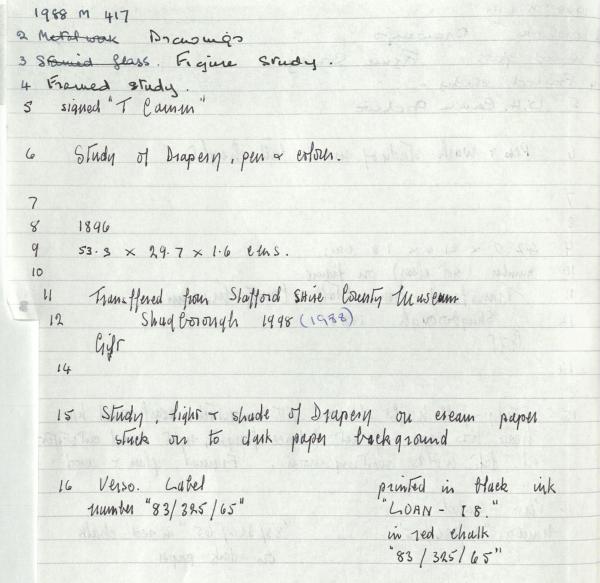 1988 M 417
2 Metalwork Drawings
3 Stained Glass. Figure Study.
4 Framed study.
5 signed "T Camm"
6 Study of Drapery, pen & colour.
7
8 1896
9 53.3 x 29.7 x 1.6 cms.
10
11 Transffered from Stafford shire County Museum
12 Shugborough 1998 (1988)
Gift
14
15 Study, light & shade of Drapery on cream paper
stuck on to dark paper background
16 Verso. Label printed in black ink
number "83/325/65" "LOAN - I 8."
in red chalk
"83/325/65"